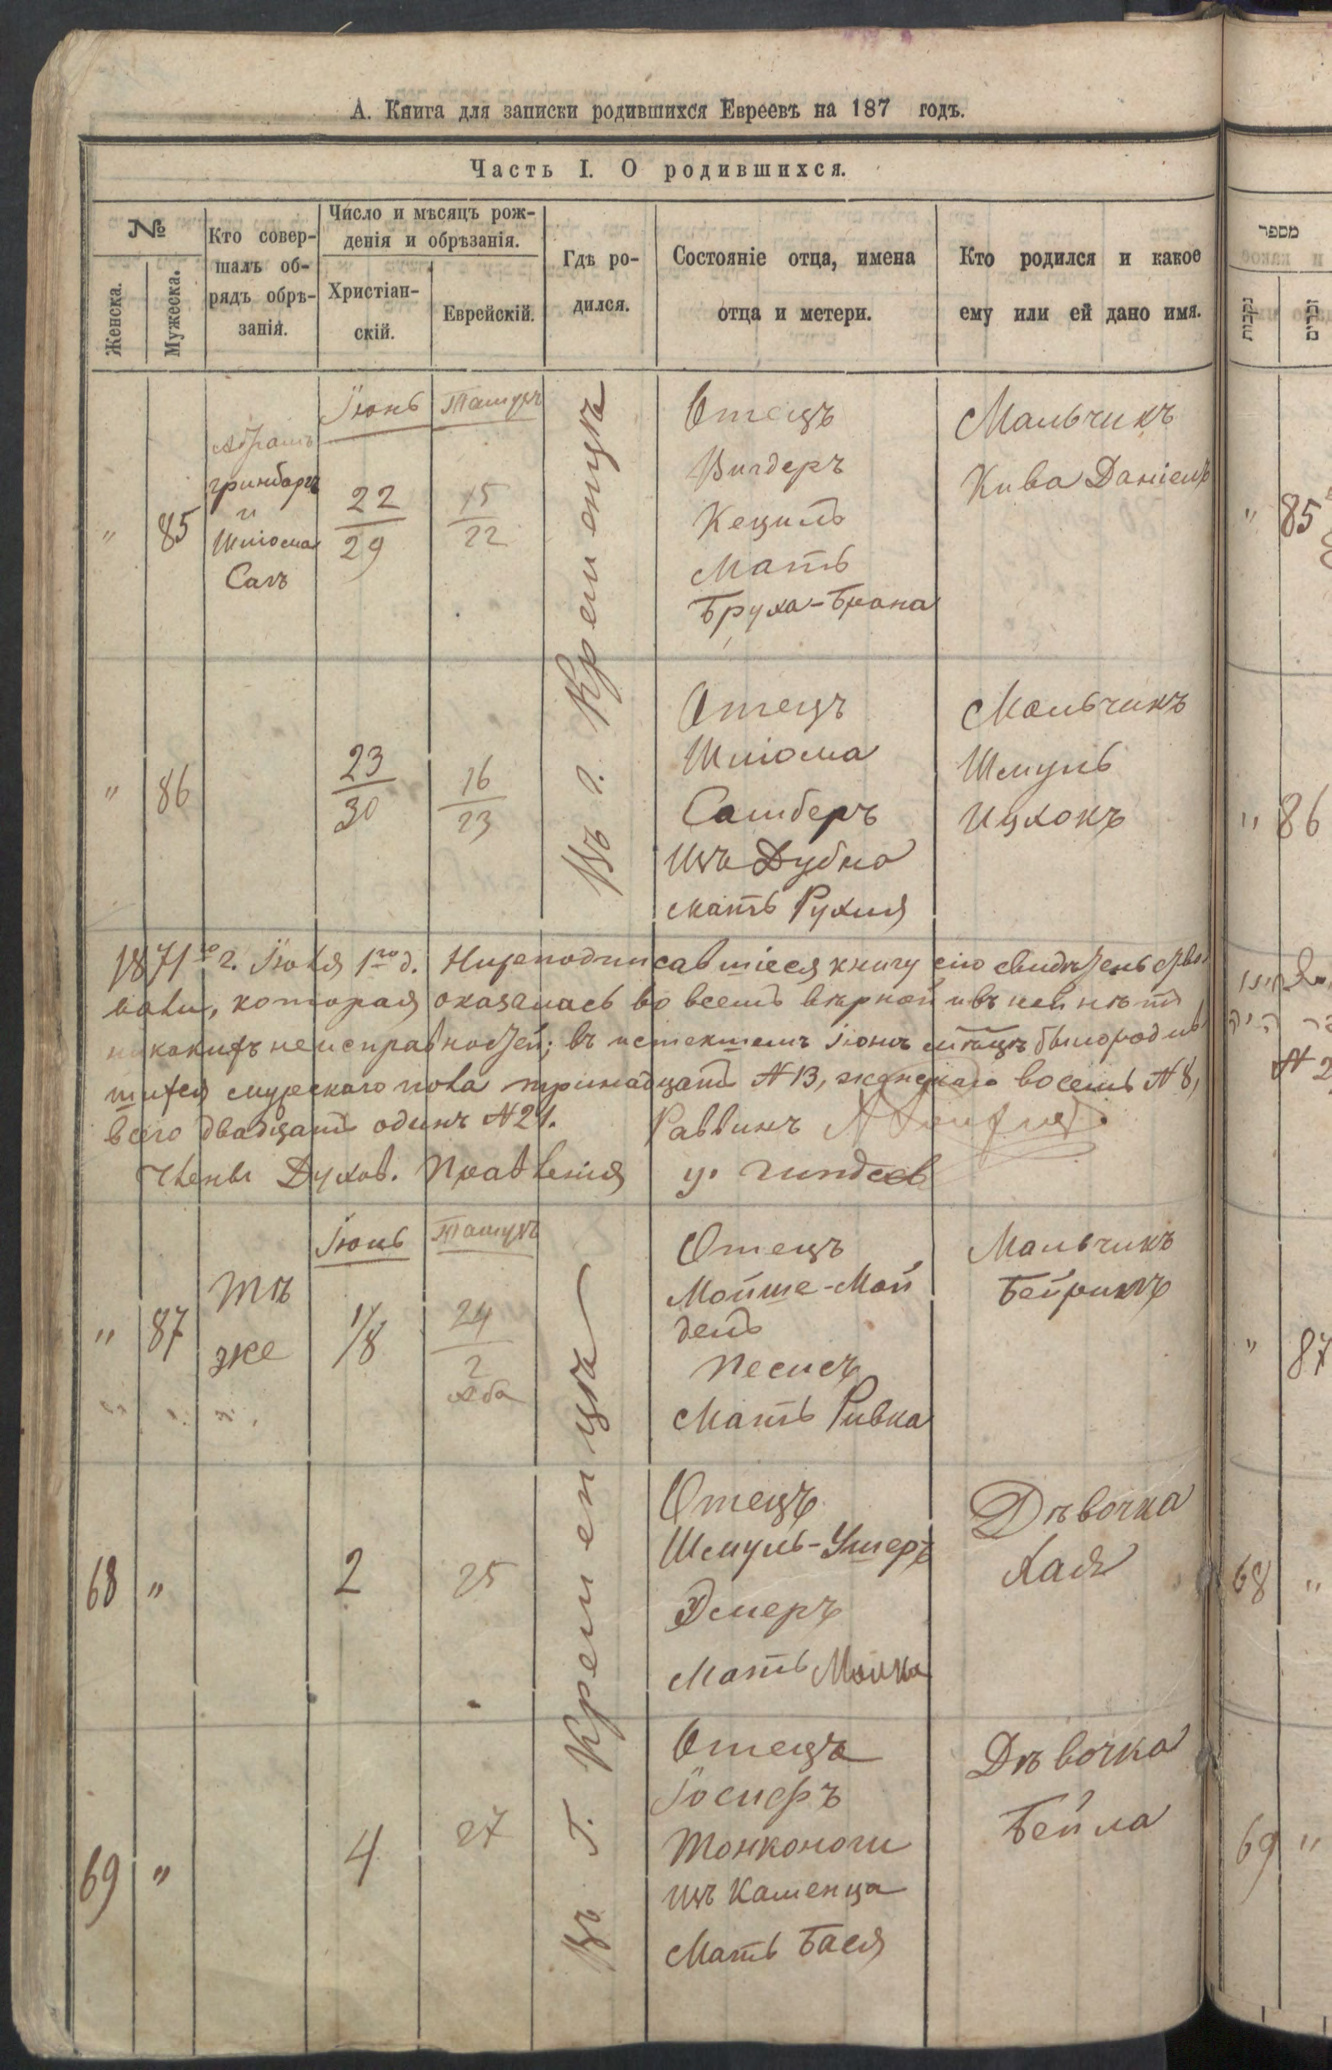 А. Книга для записки родившихся Евреевъ на 187 годъ.
Часть I. О родившихся.
№
Женска.
Мужеска.
Кто совер-
шалъ об-
рядъ обрѣ-
занія.
Число и мѣсяцъ рож-
денія и обрѣзанія.
Христіан-
скій.
Еврейскій.
Гдѣ ро-
дился.
Состояніе отца, имена
отца и метери.
Кто родился и какое
ему или ей дано имя.
" 85
Абрамъ
Гринбергъ
и
Шліома
Сагъ
Іюнь
22
29
Тамузъ
15
22
Въ г. Кременцѣ
Отецъ
Вигдеръ
Кециль
Мать
Бруха-Брана
Мальчикъ
Кива Даніель
" 86
23
30
16
23
Отецъ
Шліома
Самберъ
изъ Дубно
мать Рухля
Мальчикъ
Шмуль
Ицхокъ
1871го г. Іюля 1го д. Нижеподписавшіеся книгу сію свидѣтельство
вали, которая оказалась во всемъ вѣрной и въ ней нѣтъ
никакихъ неисправностей; въ истекшемъ Іюнѣ мѣсяцѣ было родив
шихся мужескаго пола тринадцать № 13, женскаго восемь № 8,
всего двадцать одинъ № 21. Раввинъ
Члены Духов. Правленія
" 87
Тѣ
же
Іюль
1/8
Тамузъ
24
2
Аба
Въ г. Кременцѣ
Отецъ
Мойше-Мой
дель
Песисъ
Мать Ривка
Мальчикъ
Бейришъ
68 "
2
25
Отецъ
Шмуль-Ушеръ
Эмеръ
Мать Малка
Дѣвочка
Хая
69 "
4
27
Отецъ
Іосифъ
Тонконоги
изъ Каменца
Мать Бася
Дѣвочка
Бейла
מספר
נקבות
זכרים
" 85
" 86
" 87
68 "
69 "